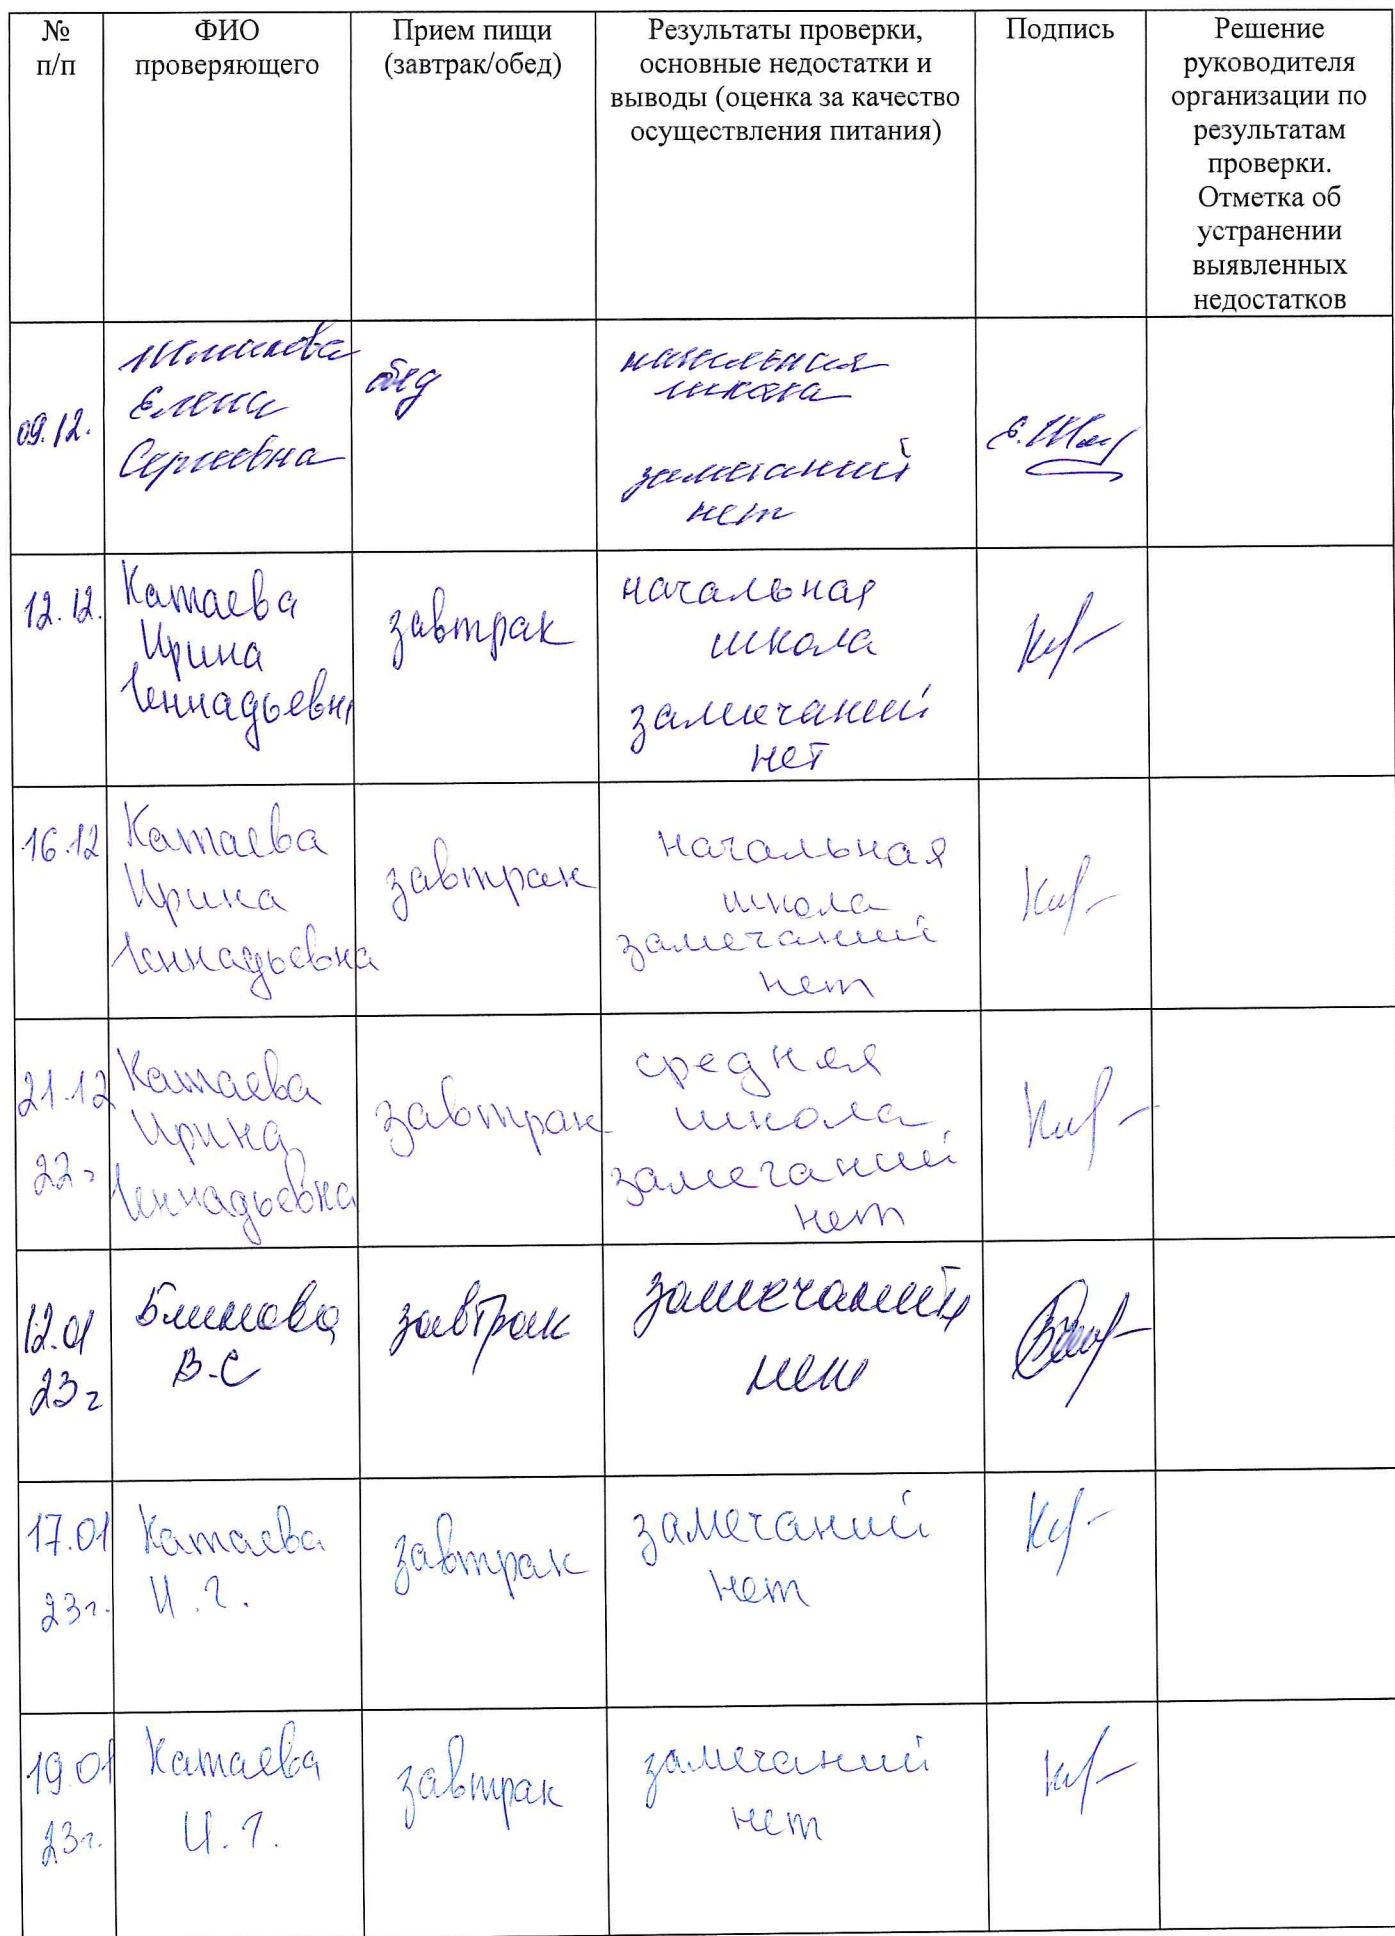 №
п/п
ФИО
проверяющего
Прием пищи
(завтрак/обед)
Результаты проверки,
основные недостатки и
выводы (оценка за качество
осуществления питания)
Подпись
Решение
руководителя
организации по
результатам
проверки.
Отметка об
устранении
выявленных
недостатков
09.12.
Елена
Сергеевна
обед
начальная
школа
замечаний
нет
12.12.
Катаева
Ирина
Геннадьевна
завтрак
начальная
школа
замечаний
нет
16.12
Катаева
Ирина
Геннадьевна
завтрак
начальная
школа
замечаний
нет
21.12
22г
Катаева
Ирина
Геннадьевна
завтрак
средняя
школа
замечаний
нет
12.01
23г
Блинова
В.С
завтрак
замечаний
нет
17.01
23г.
Катаева
И.Г.
завтрак
замечаний
нет
19.01
23г.
Катаева
И.Г.
завтрак
замечаний
нет